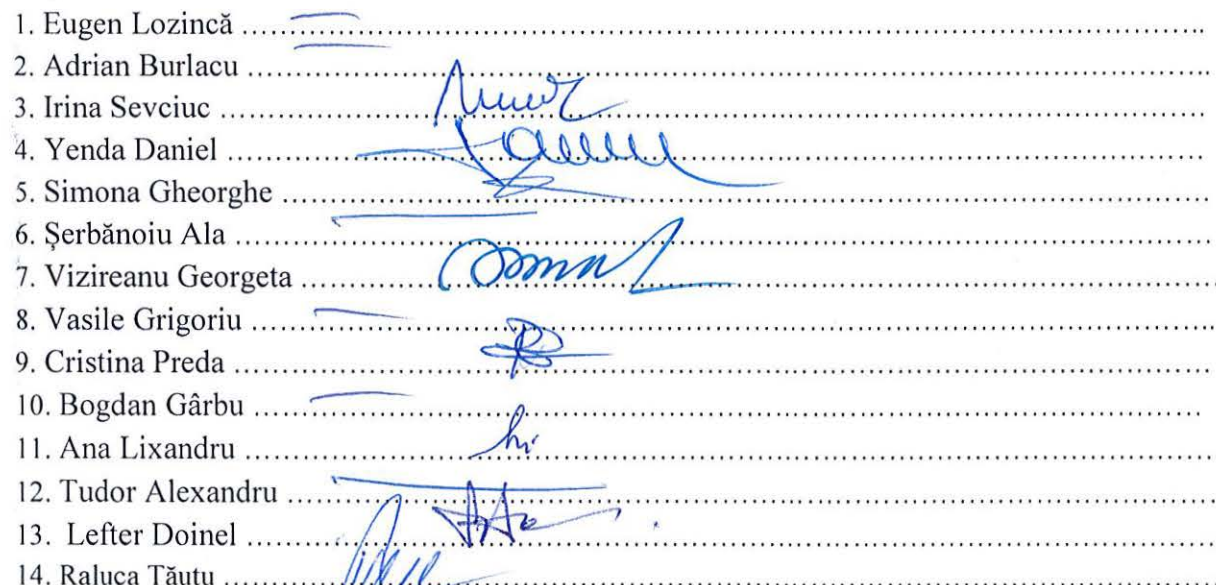 1. Eugen Lozincă ................................................................
2. Adrian Burlacu ................................................................
3. Irina Sevciuc ................................................................
4. Yenda Daniel ................................................................
5. Simona Gheorghe ................................................................
6. Șerbănoiu Ala ................................................................
7. Vizireanu Georgeta ................................................................
8. Vasile Grigoriu ................................................................
9. Cristina Preda ................................................................
10. Bogdan Gârbu ................................................................
11. Ana Lixandru ................................................................
12. Tudor Alexandru ................................................................
13. Lefter Doinel ................................................................
14. Raluca Tăutu ................................................................